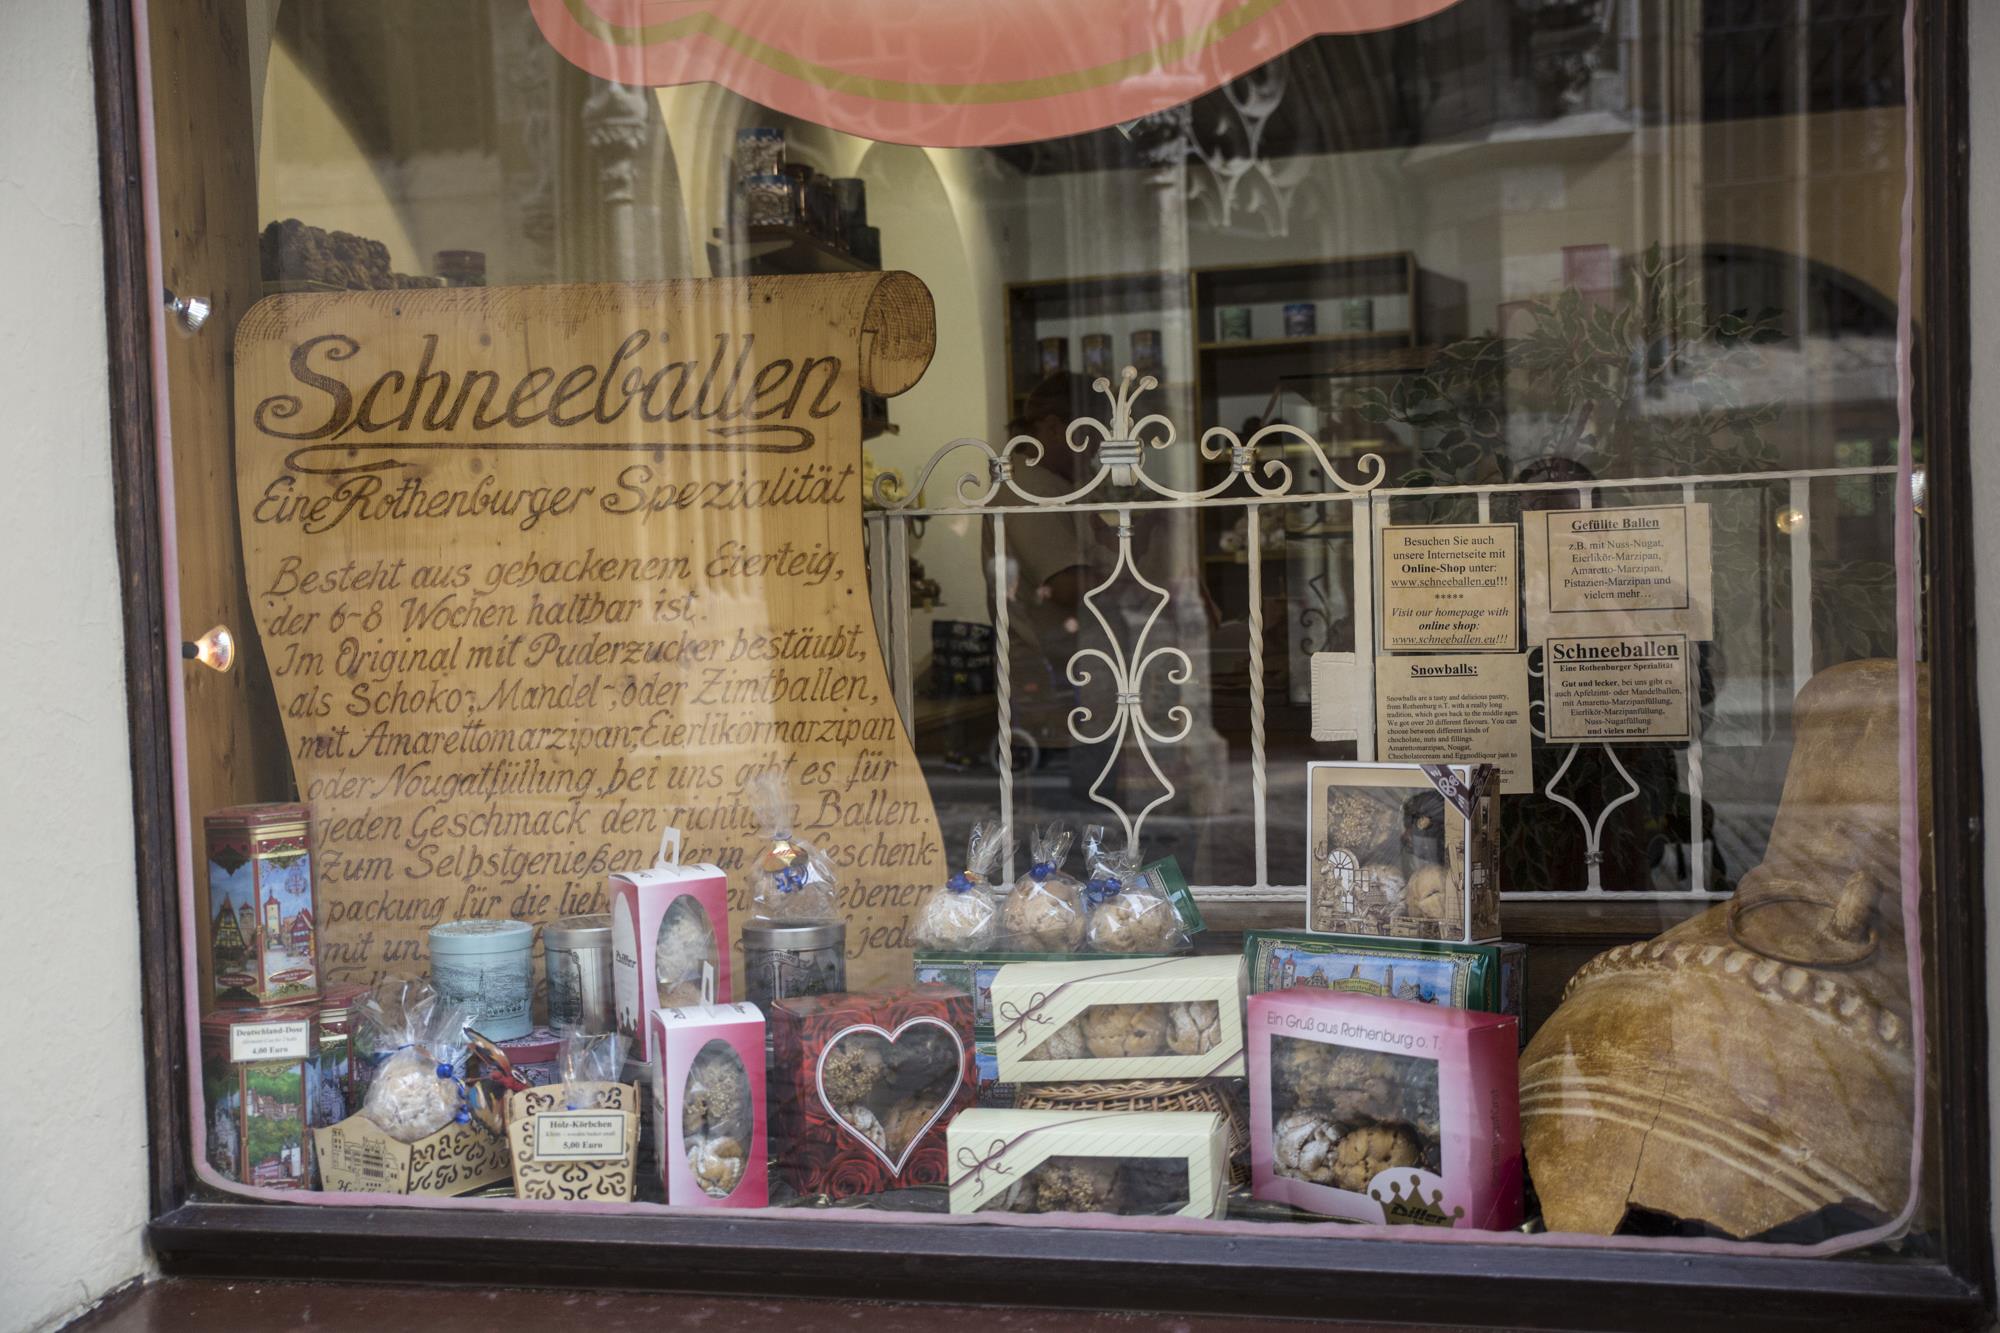 Schneeballen
Eine Rothenburger Spezialität
Besteht aus gebackenem Eierteig,
der 6-8 Wochen haltbar ist.
Im Original mit Puderzucker bestäubt,
als Schoko-, Mandel-, oder Zimtballen,
mit Amarettomarzipan-, Eierlikörmarzipan
oder Nougatfüllung, bei uns gibt es für
jeden Geschmack den richtigen Ballen.
Zum Selbstgenießen oder in Geschenk-
packung für die
mit
Besuchen Sie auch
unsere Internetseite mit
Online-Shop unter:
www.schneeballen.eu!!!
*****
Visit our homepage with
online shop:
www.schneeballen.eu!!!
Gefüllte Ballen
z.B. mit Nuss-Nugat,
Eierlikör-Marzipan,
Amaretto-Marzipan,
Pistazien-Marzipan und
vielem mehr…
Snowballs:
Snowballs are a tasty and delicious pastry,
from Rothenburg o.T. with a really long
tradition, which goes back to the middle ages.
We got over 20 different flavours. You can
choose between different kinds of
chocholate, nuts and fillings.
Amarettomarzipan, Nougat,
Chocholatecream and Eggnodliqour just to
Schneeballen
Eine Rothenburger Spezialität
Gut und lecker, bei uns gibt es
auch Apfelzimt- oder Mandelballen,
mit Amaretto-Marzipanfüllung,
Eierlikör-Marzipanfüllung,
Nuss-Nugatfüllung
und vieles mehr!
Deutschland-Dose
4,00 Euro
Holz-Körbchen
5,00 Euro
Diller
Ein Gruß aus Rothenburg o. T.
Diller